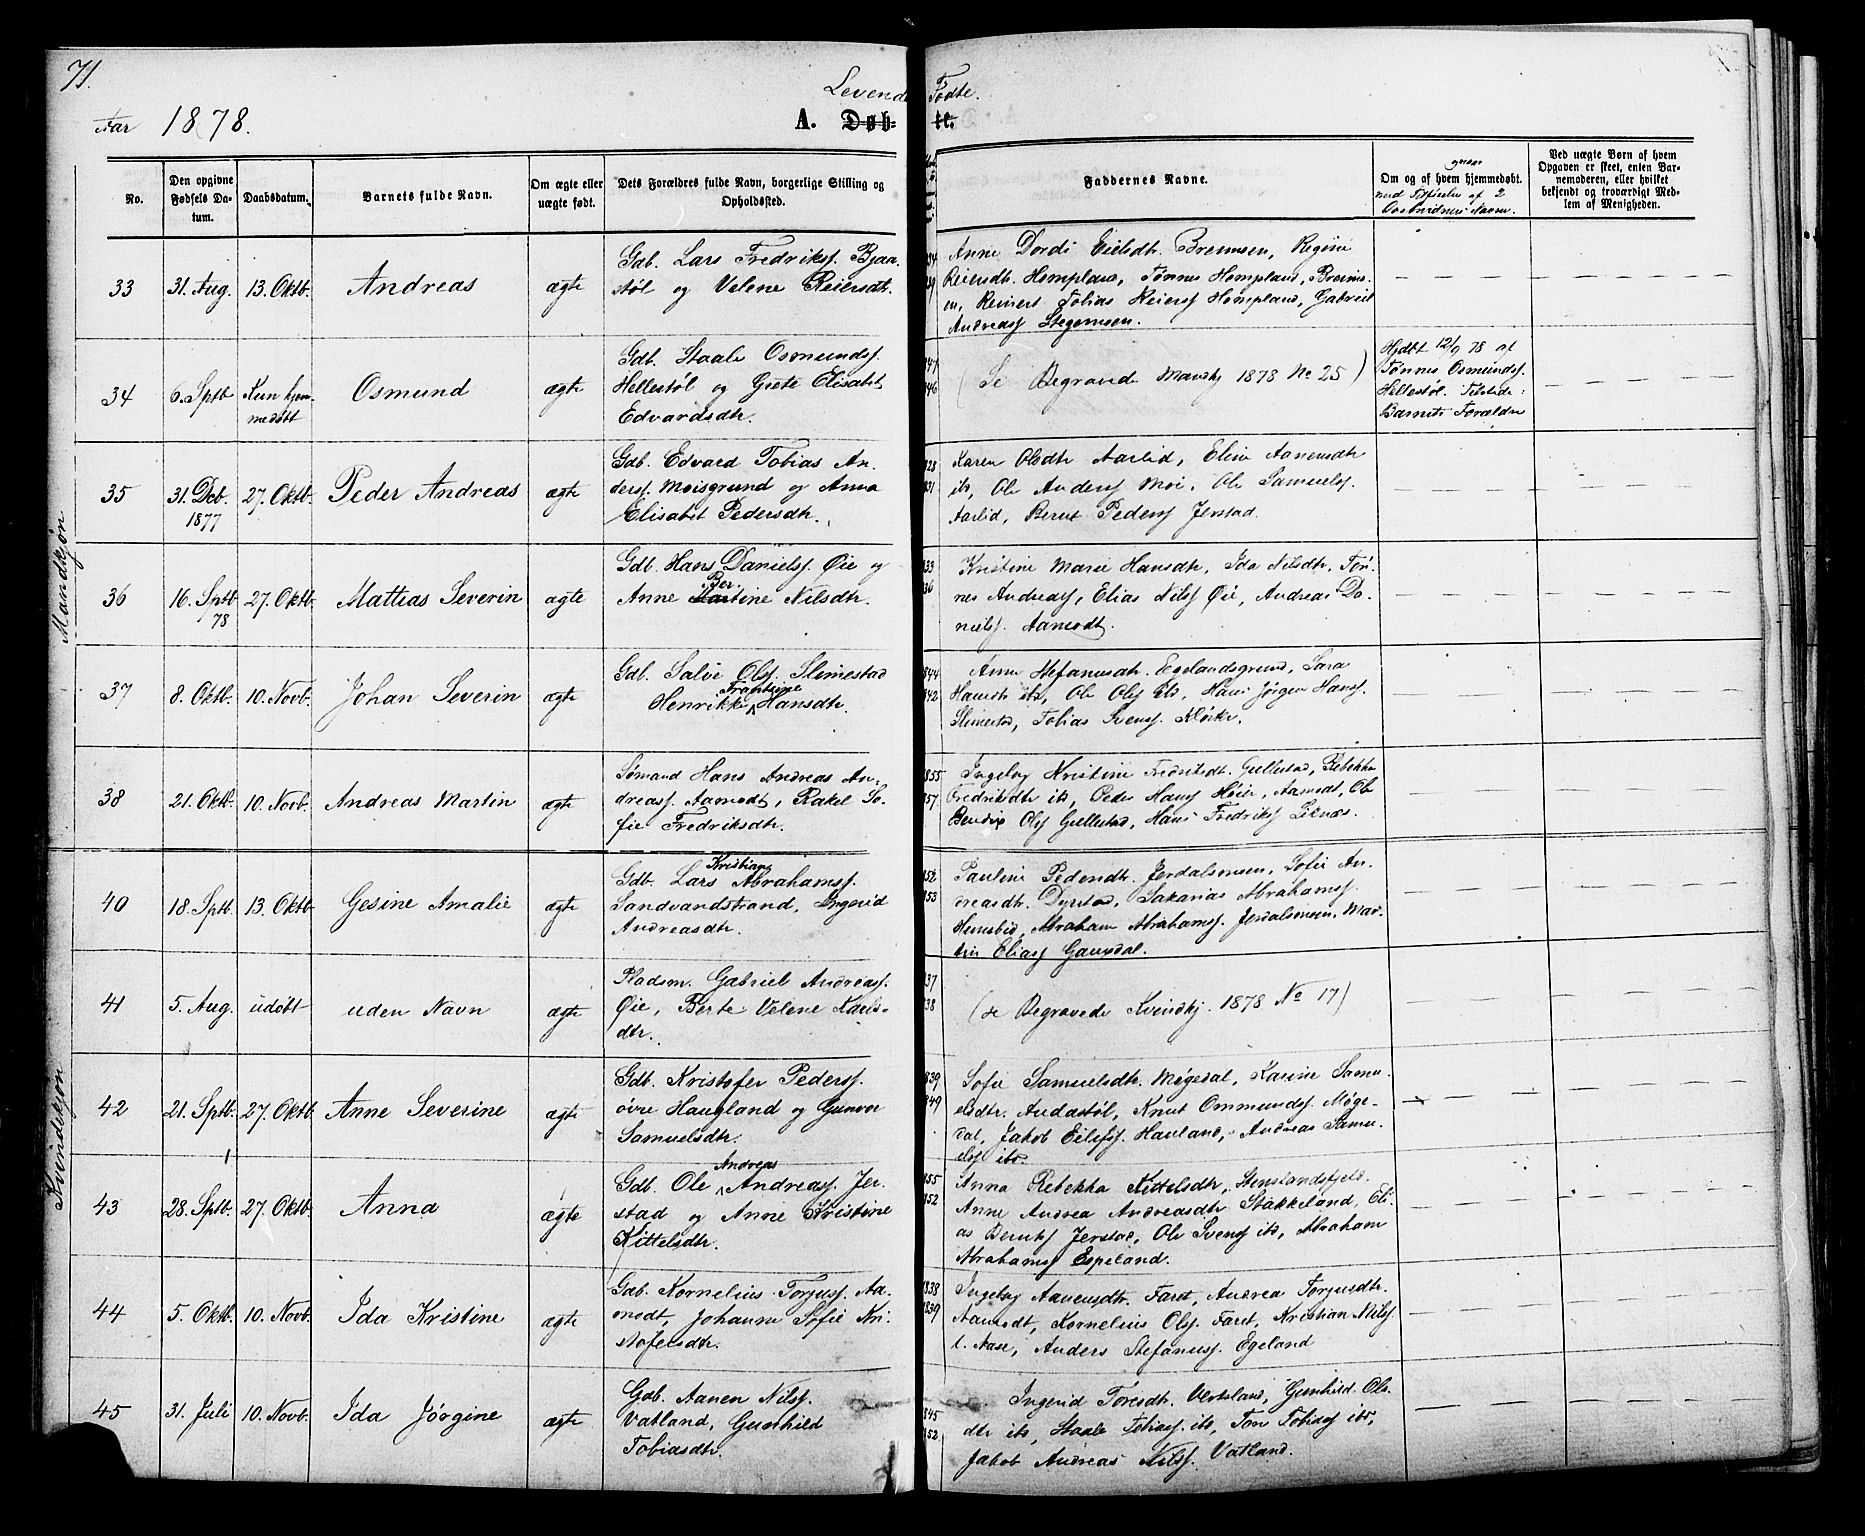 71.
Levende Fødte.
Aar 1878.
A. Døbte.
No.
Den opgivne Fødsels Datum.
Daabsdatum.
Barnets fulde Navn.
Om ægte eller uægte født.
Dets Forældres fulde Navn, borgerlige Stilling og Opholdssted.
Faddernes Navne.
Om og af hvem hjemmedøbt.
Ved uægte Børn af hvem Opgaven er skeet, enten Barnemoderen, eller hvilket bekjendt og troværdigt Medlem af Menigheden.
Mandkjøn
33 31. Aug. 13. Oktb. Andreas ægte
Gdb. Lars Fredriksf. Bjaa-
støl og Velene Reiersdt.
Anne Dordi Eilsdtr. Bremsen, Regine
Reiersdt. Hompland, Tønnes Hompland, Brems-
en, Reinert Tobias Reiersf Hompland, Gabriel
Andreasf Stegemoen.
34 6. Sptb. Kun hjem-
medøbt Osmund ægte
Gdb. Staale Osmundsf.
Hellestøl og Grete Elisabet
Edvardsdtr.
47
46
(Se Begravede Mandkj 1878 No 25)
Hjdbt 12/9 78 af
Tønnes Osmundsf.
Hellestøl. Tilstede:
Barnets Forældre
35 31. Dcb. 1877 27. Oktb. Peder Andreas ægte
Gdb. Edvard Tobias An-
dersf. Moisgrund og Anna
Elisabet Pedersdtr.
828
831
Karen Olsdtr Aarlid, Eline Aanensdtr
ibs, Ole Andersf Moi, Ole Samuelsf.
Aarlid, Berut Pedersf Jerstad.
36 16. Sptb. 78 27. Oktb. Mattias Severin ægte
Gdb. Hans Danielsf. Øie og
Anne Bertine Nilsdtr.
833
36
Kristine Marie Hansdtr, Ida Nilsdtr, Tøn-
nes Andreasf, Elias Nilsf Øie, Andreas Da-
nielsf. Aamodt.
37 8. Oktb. 10. Novb. Johan Severin ægte
Gdb. Salve Olsf. Slimestad
Henrikke Trontine Hansdtr.
844
842
Anne Stefanusdtr. Egelandsgrund, Sara
Hansdt ibs, Ole Olsf ibs, Hans Jørgen Hansf.
Slimestad, Tobias Svensf.
38 21. Oktb. 10. Novb. Andreas Martin ægte
Sømand Hans Andreas An-
dreasf. Aamodt, Rakel So-
fie Fredriksdtr.
855
857
Ingeborg Kristine Fredriksdt. Gullestad, Rebekka
Fredriksdtr ibs, Peder Hansf Høie, Aamodt, Ole
Bendix Olsf Gullestad, Hans Fredriksf Liknæs.
Kvindekjøn
40 18. Sptb. 13. Oktb. Gesine Amalie ægte
Gdb. Lars Kristian Abrahamsf.
Sandvandstrand, Ingerid
Andreasdtr.
852
853
Pauline Pedersdtr. Jerdalsmoen, Sofie An-
dreasdtr. Dyrstad, Sakarias Abrahamsf.
Abraham Abrahamsf. Jerdalsmoen, Mar-
tin Eliasf
41 5. Aug. udøbt uden Navn ægte
Pladsm. Gabriel Andreasf.
Øie, Berte Velene Karls-
dtr.
37
38
(se Begravede Kvindkj. 1878 No 17)
42 21. Sptb. 27. Oktb. Anne Severine ægte
Gdb. Kristofer Pedersf.
øvre Haugland og Gunvor
Samuelsdtr.
839
849
Sofie Samuelsdtr. Møgedal, Karine Samu-
elsdtr. Audastøl, Knut Ommundsf. Møge-
dal, Jakob Eilefsf. Hauland, Andreas Samu-
elsf ibs.
43 28. Sptb. 27. Oktb. Anna ægte
Gdb. Ole Andreas Andreasf. Jer-
stad og Anne Kristine
Kittelsdtr.
855
852
Anna Rebekka Kittelsdtr. Stenslandsfjeld.
Anne Andrea Andreasdtr. Stakkeland, Eli-
as Berntsf Jerstad, Ole Svensf ibs, Abraham
Abrahamsf Espeland.
44 5. Oktb. 10. Novb. Ida Kristine ægte
Gdb. Kornelius Torjusf. Aa-
modt, Johanne Sofie Kri-
stofersdtr.
838
839
Ingeborg Aanensdtr. Faret, Andrea Torjusdtr.
Aamodt, Kornelius Olsf. Faret, Kristian Nilsf
Anders Stefanusf. Egeland
45 31. Juli 10. Novb. Ida Jørgine ægte
Gdb. Aanen Nilsf.
Vatland, Gunhild
Tobiasdtr.
845
852
Ingerid Toresdtr. Vatland, Gunhild Ols-
dtr ibs, Staale Tobiasf. ibs, Tore Tobiasf ibs,
Jakob Andreas Nilsf. Vatland.